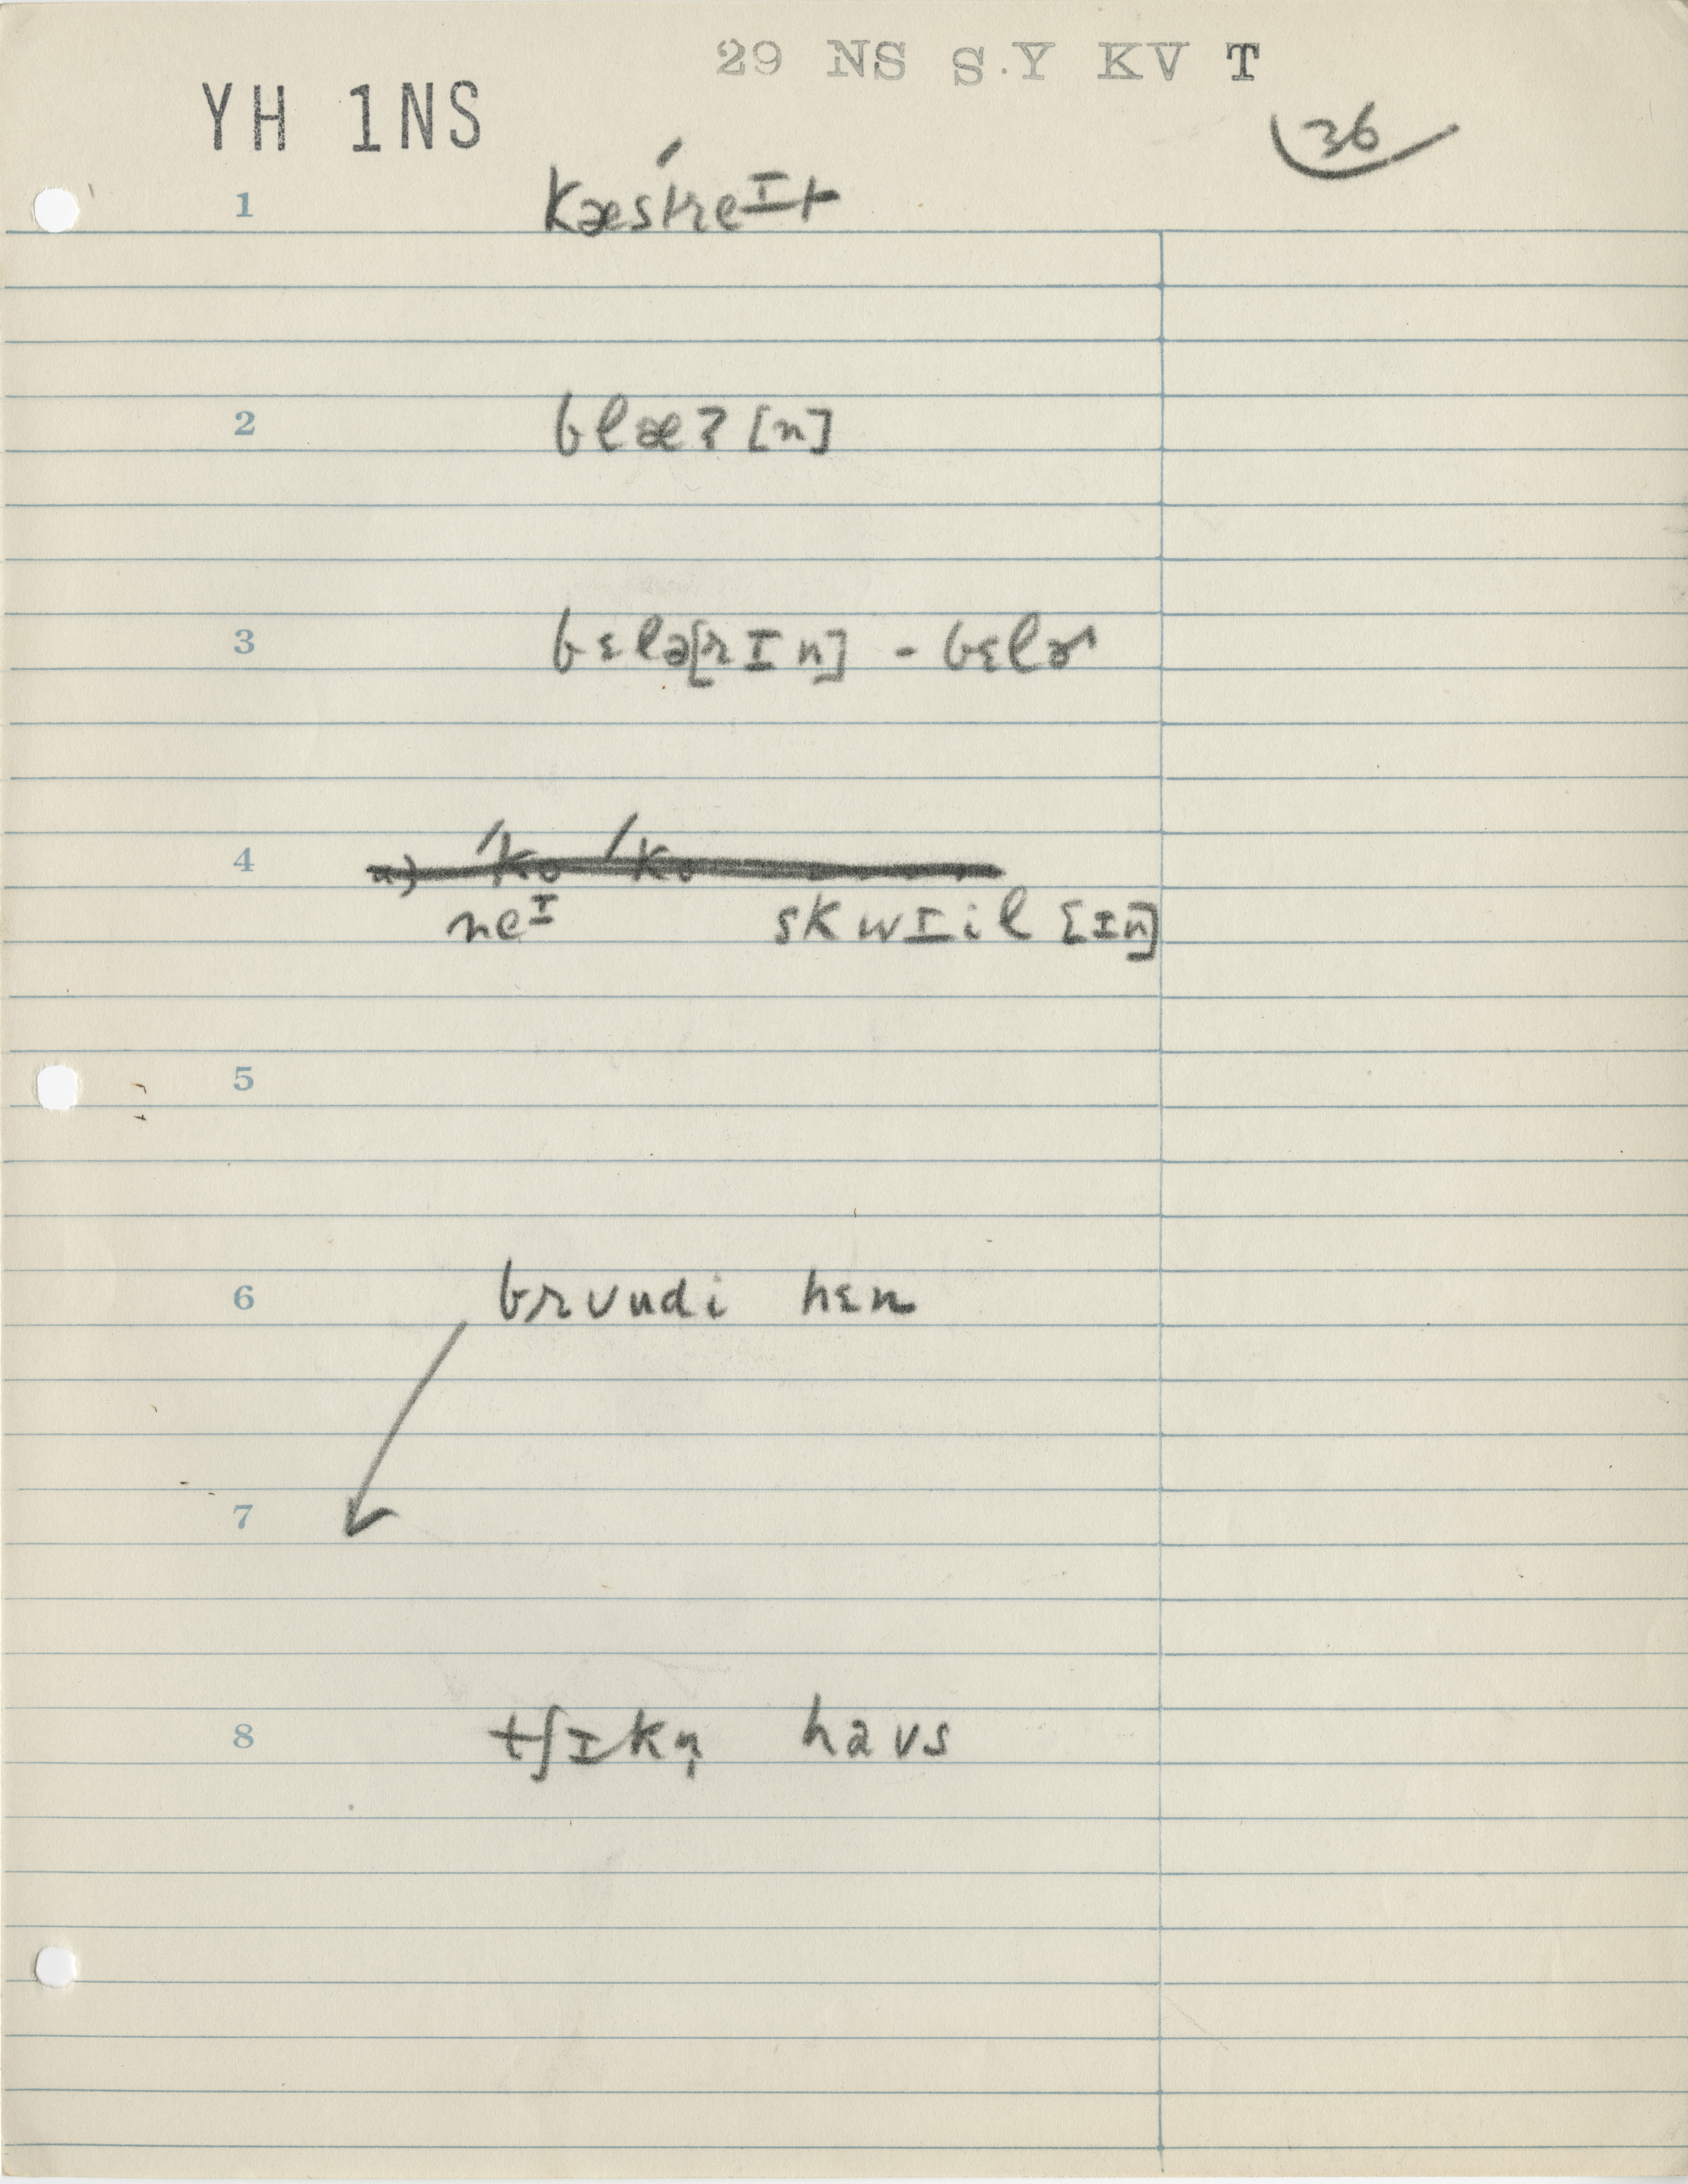 29 NS S.Y KV T
YH 1NS
36
1 kæstreɪt
2 blæʔ [n]
3 bɛlə[rɪn] - bɛlɚ
4
neᴵ skwɪil [ɪn]
5
6 brʊudi hɛn
7
8 tʃɪkn̩ haʊs